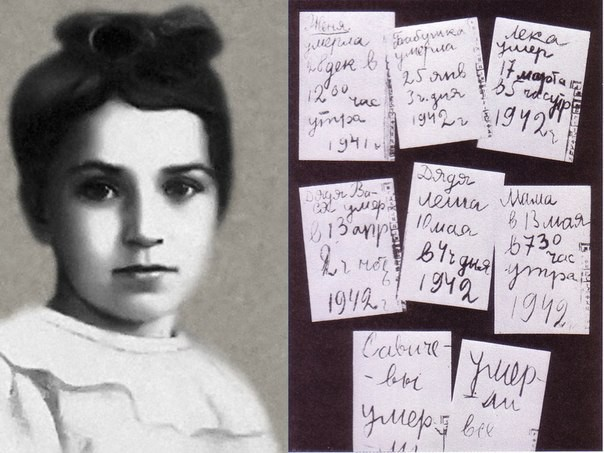 Женя
умерла
28 дек в
12 00 час
утра
1941 г
Бабушка
умерла
25 янв
3 ч. дня
1942 г
Лека
умер
17 марта
в 5 часутр
1942 г
Дядя Ва-
ся умер
в 13 апр
2 ч ноч
1942 г
Дядя
Леша
10 мая
в 4 ч дня
1942
Мама
в 13 мая
в 7 30
час
утра
1942
Савиче-
-вы
умер-
ли
умер-
-ли
все